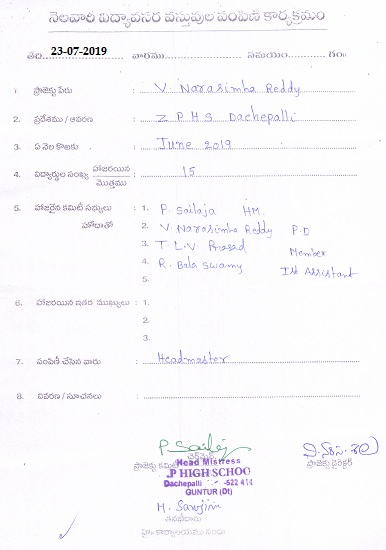 నెలవారీ విద్యావసర వస్తువుల పంపిణీ కార్యక్రమం
తేది. 23-07-2019 వారము సమయం గం॥
1. ప్రాజెక్టు పేరు : V. Narasimha Reddy
2. ప్రదేశము / ఆవరణ : Z P H S Dachepalli
3. ఏ నెల కొఱకు : June 2019
4. విద్యార్థుల సంఖ్య హాజరయిన / మొత్తము : 15
5. హాజరైన కమిటీ సభ్యులు : 1. P. Sailaja HM.
హోదాతో 2. V Narasimha Reddy P.D
3. T. L. V Prasad Member
4. R. Bala Swamy Ist Assistant
5.
6. హాజరయిన ఇతర ముఖ్యులు : 1.
2.
3.
7. పంపిణీ చేసిన వారు : Headmaster
8. వివరణ / సూచనలు :
P Sailaja
చైర్మన్
ప్రాజెక్టు కమిటీ ప్రాజెక్ట్ డైరెక్టర్
Head Mistress
.P HIGH SCHOO
Dachepalli -522 414
GUNTUR (Dt)
H. Sarojini
తనిఖీదారు